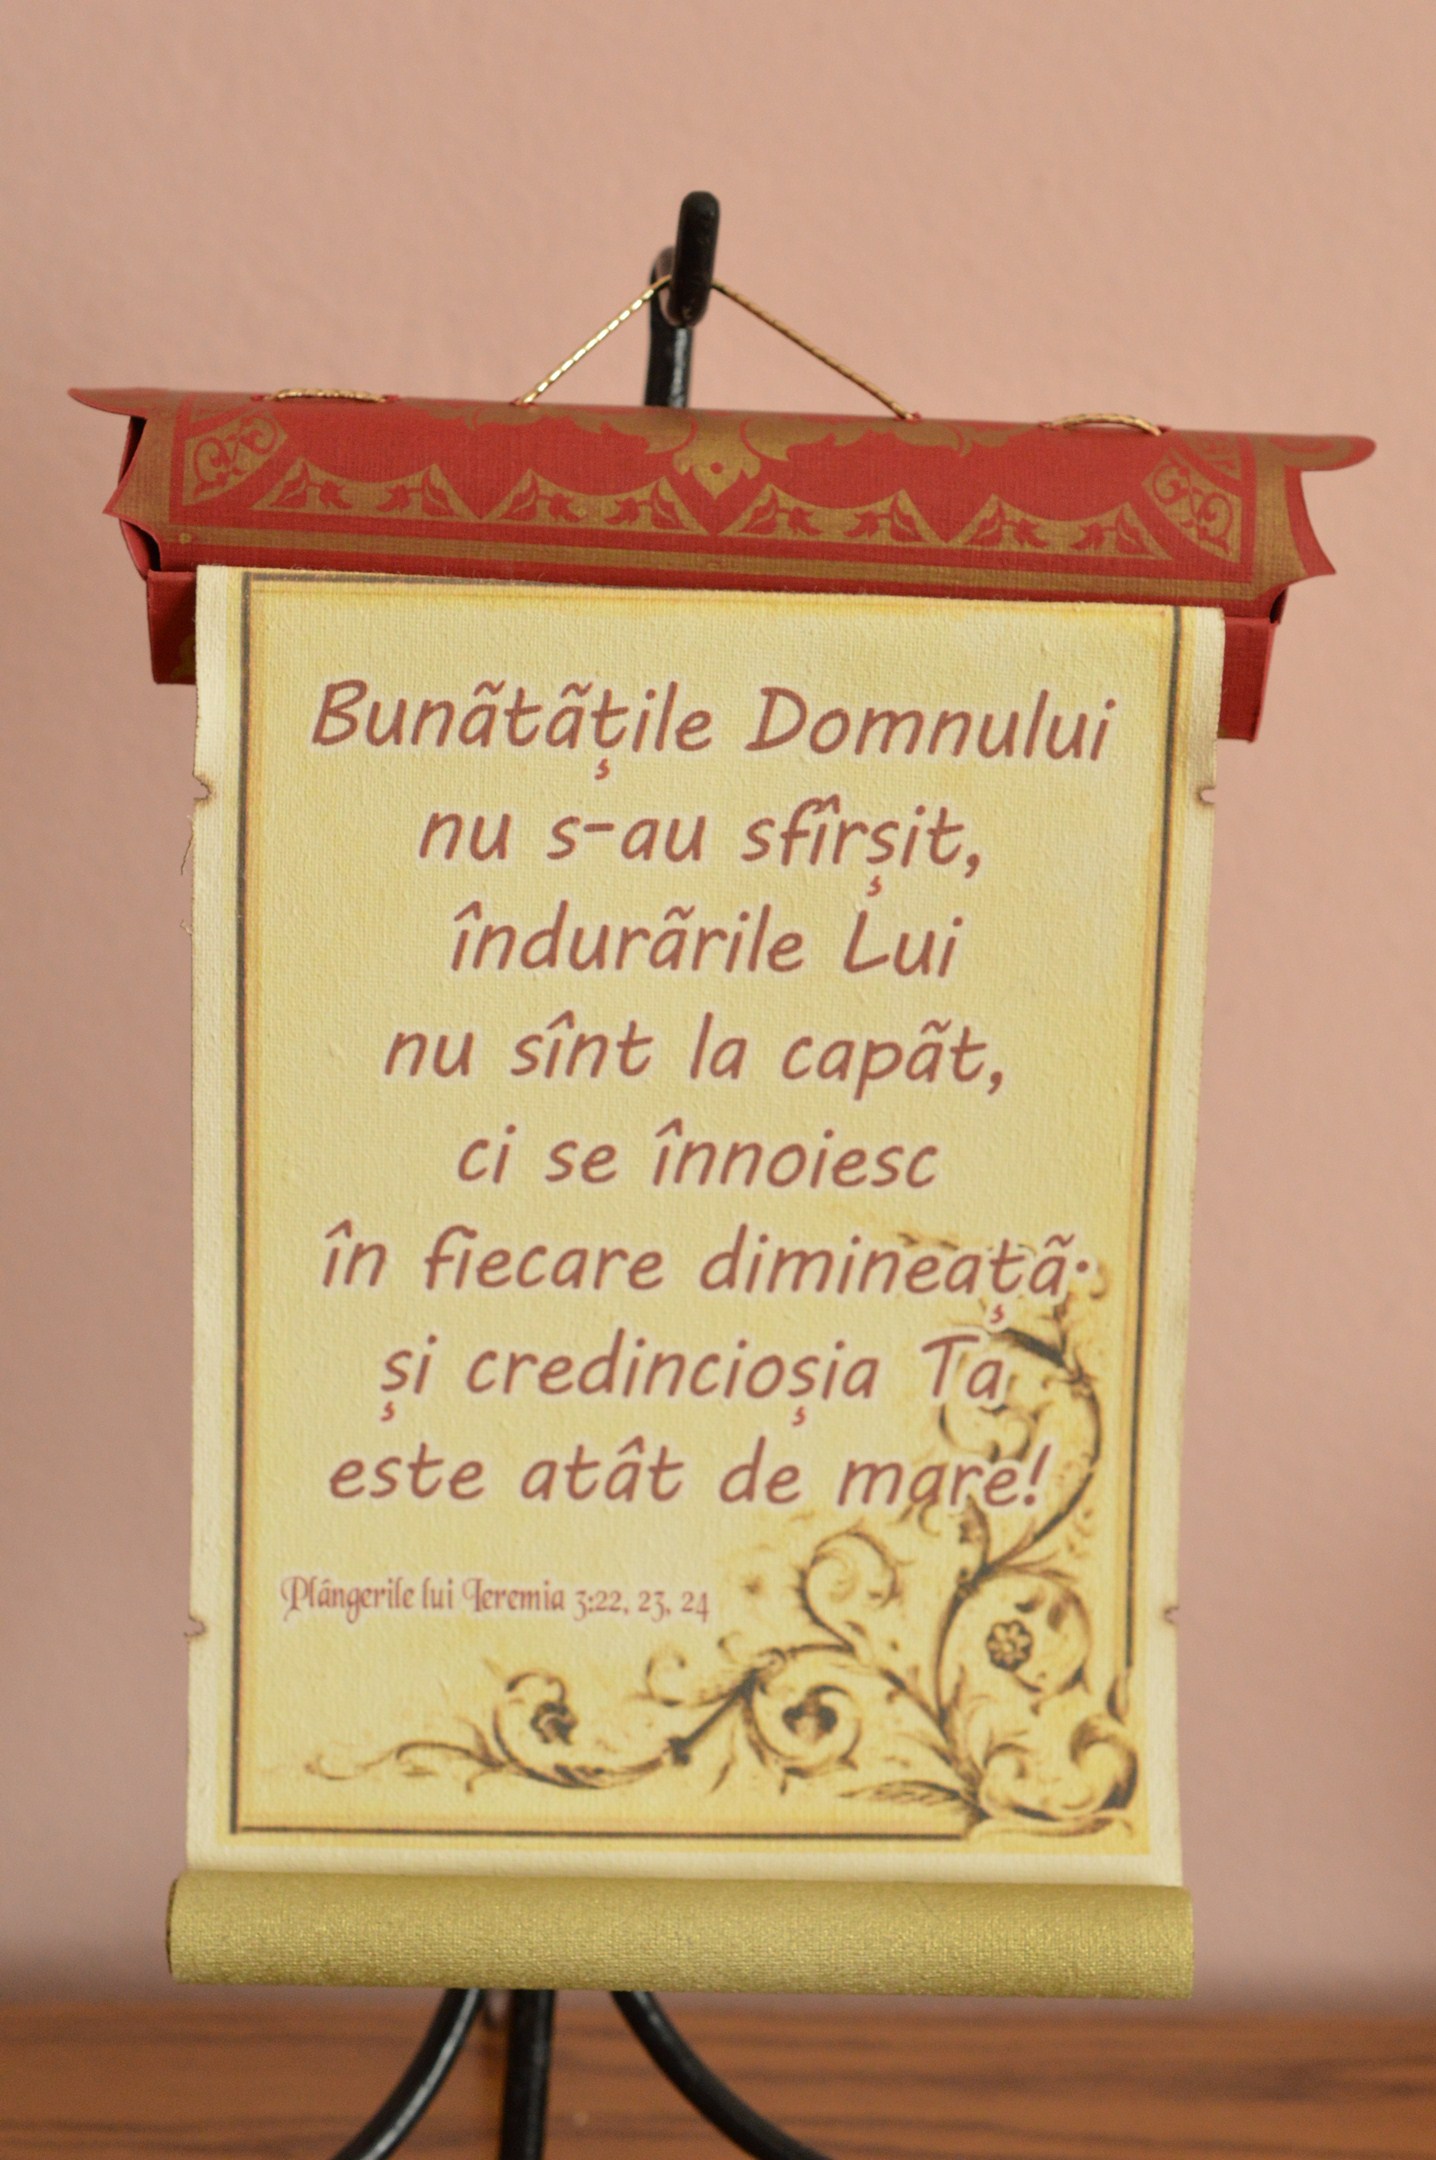 Bunãtãțile Domnului
nu s-au sfîrșit,
îndurãrile Lui
nu sînt la capãt,
ci se înnoiesc
în fiecare dimineațã.
și credincioșia Ta
este atât de mare!
Plângerile lui Ieremia 3:22, 23, 24